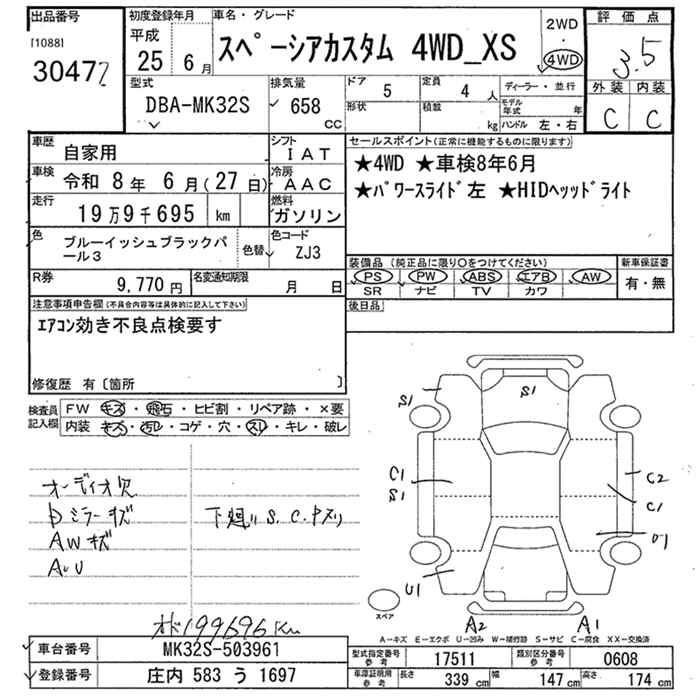 出品番号
[1088]
30472
初度登録年月
平成
25 6月
車名・グレード
スペーシアカスタム 4WD_XS
2WD
・
4WD
評価点
3.5
外装 内装
C C
型式
DBA-MK32S
排気量
658
CC
ドア 5
定員 4 人
形状
積載 kg
ディーラー・並行
モデル年式 年
ハンドル 左・右
車歴 自家用
シフト IAT
車検 令和 8年 6月(27日)
冷房 AAC
走行 19万9千695 km
燃料 ガソリン
色 ブルーイッシュブラックパール3
色替
色コード ZJ3
R券 9,770円
名変通知期限 月 日
セールスポイント(正常に機能するものに限ります)
★4WD ★車検8年6月
★パワースライド左 ★HIDヘッドライト
装備品 (純正品に限り○をつけてください)
PS PW ABS エアB AW
SR ナビ TV カワ
新車保証書
有・無
後日品
注意事項申告欄(不具合内容等は具体的に記入して下さい)
エアコン効き不良点検要す
修復歴 有〔箇所 〕
検査員記入欄
FW キズ・飛石・ヒビ割・リペア跡・×要
内装 キズ・汚レ・コゲ・穴・スレ・キレ・破レ
オーディオ欠
Dミラーキズ
AWキズ
AUU
下廻り S.C.
S1 S1
C1 C2
S1 C1
U1
A2 A1
スペア
A-キズ E-エクボ U-凹み W-補修跡 S-サビ C-腐食 XX-交換済
199696Km
車台番号 MK32S-503961
登録番号 庄内 583 う 1697
型式指定番号 参考 17511
類別区分番号 参考 0608
車庫証明用 参考 長さ 339 cm 幅 147 cm 高さ 174 cm